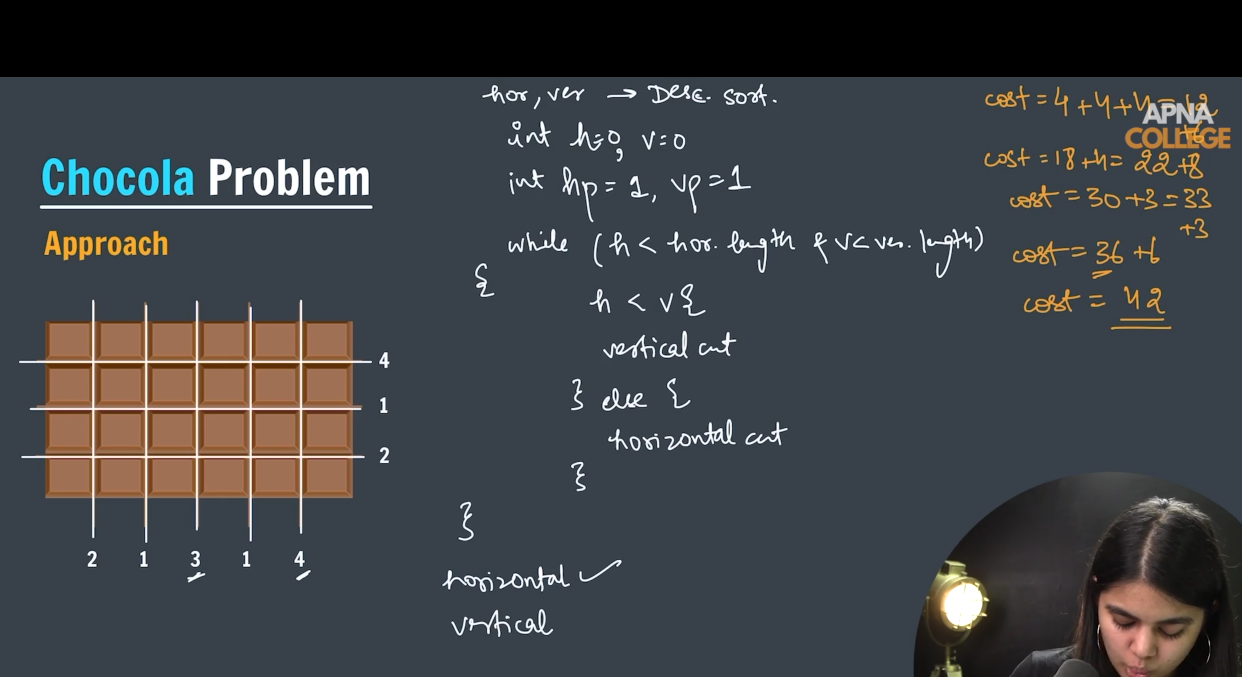 Chocola Problem
Approach
4
1
2
2 1 3 1 4
hor, ver → Desc. sort.
int h=0, v=0
int hp = 1, vp = 1
while (h < hor. length & v < ver. length)
{
h < v {
vertical cut
} else {
horizontal cut
}
}
horizontal ✓
vertical
cost = 4 + 4 + 4 = 12
+6
APNA
COLLEGE
cost = 18 + 4 = 22 + 8
cost = 30 + 3 = 33
+3
cost = 36 + 6
cost = 42